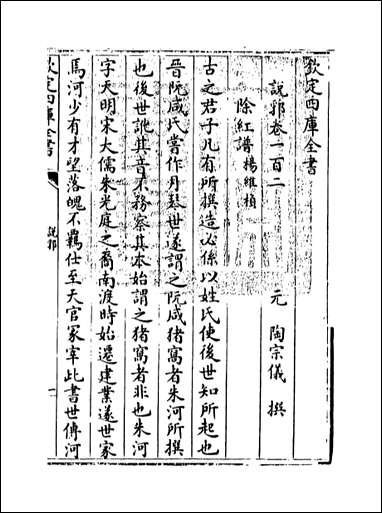 欽定四庫全書
說郛卷一百二
元 陶宗儀 撰
除紅譜 楊維楨
古之君子凡有所撰造必係以姓氏使後世知所起也
晉阮咸氏嘗作月琴世遂謂之阮咸猪窩者朱河所撰
也後世訛其音不務察其本始謂之猪窩者非也朱河
字天明宋大儒朱光庭之裔南渡時始遷建業遂世家
焉河少有才望落魄不羈仕至天官冢宰此書世傳河
欽定四庫全書
說郛
一